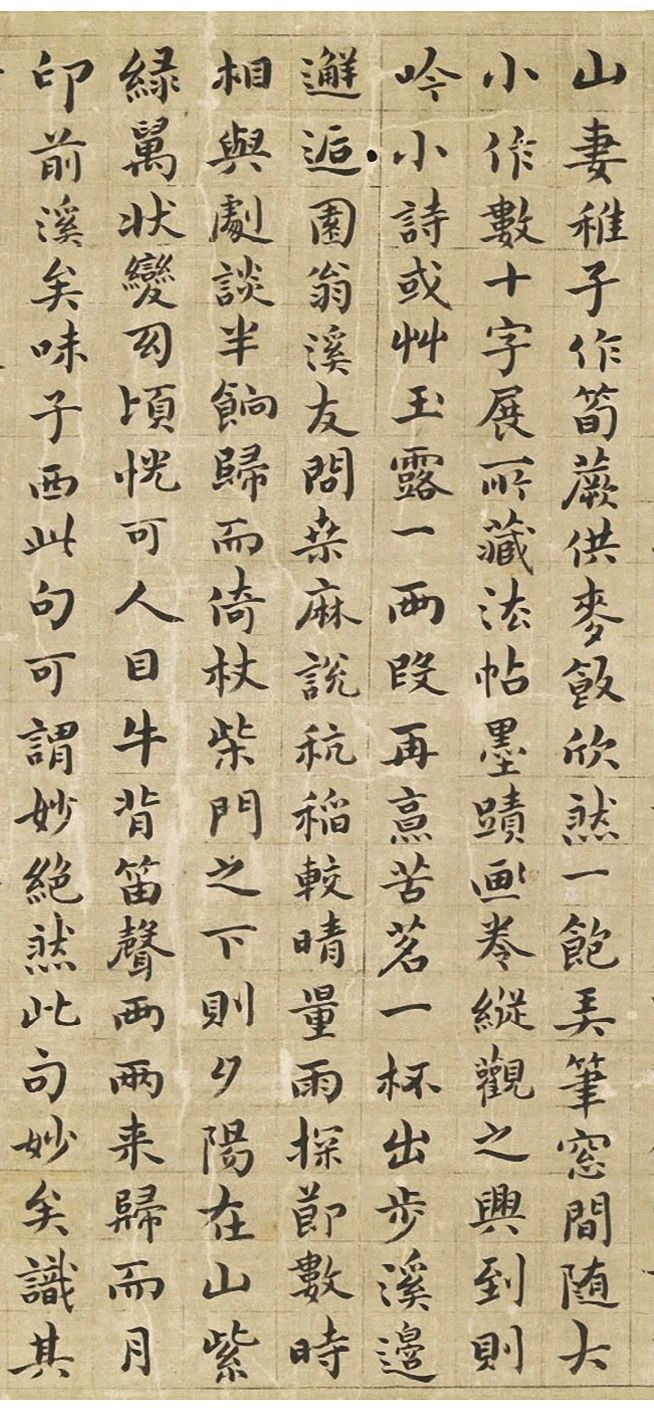 山妻稚子作筍蕨供麥飯欣然一飽弄筆窓間随大
小作數十字展所藏法帖墨蹟畫卷縱觀之興到則
吟小詩或艸玉露一兩段再烹苦茗一杯出步溪邊
邂逅園翁溪友問桒麻說秔稻較晴量雨探節數時
相與劇談半餉歸而倚杖柴門之下則夕陽在山紫
緑萬状變幻頃恍可人目牛背笛聲兩兩来歸而月
印前溪矣味子西此句可謂妙絕然此句妙矣識其